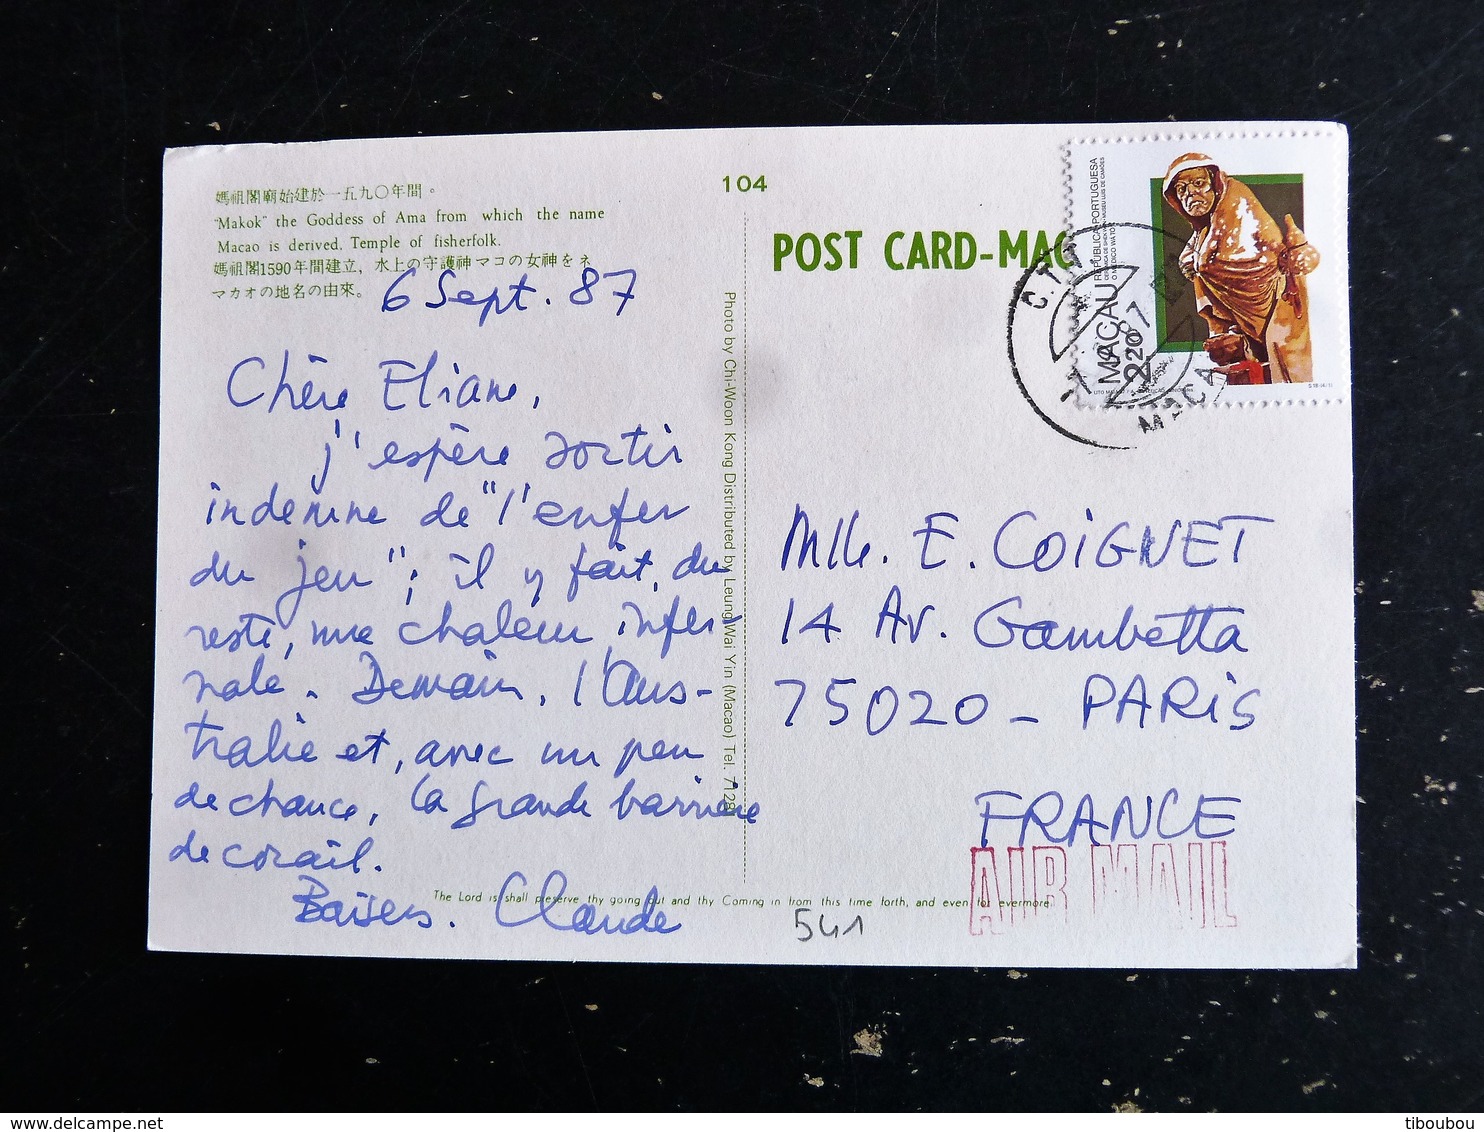 媽祖閣廟始建於一五九〇年間。
"Makok" the Goddess of Ama from which the name
Macao is derived. Temple of fisherfolk.
媽祖閣1590年間建立，水上の守護神マコの女神をネ
マカオの地名の由來。
6 Sept. 87
Chère Eliane,
j'espère sortir
indemne de "l'enfer
du jeu"; il y fait, du
reste, une chaleur infer-
nale. Demain, l'Aus-
tralie et, avec un peu
de chance, la grande barrière
de corail.
Baisers. Claude
The Lord is shall preserve thy going out and thy Coming in from this time forth, and even for evermore
Photo by Chi-Woon Kong Distributed by Leung Wai Yin (Macao) Tel. 7128
104
POST CARD-MAC
REPÚBLICA PORTUGUESA
MACAU
2.20
C.T.T.
87
MACA
Mlle. E. COIGNET
14 Av. Gambetta
75020 - PARIS
FRANCE
AIR MAIL
541
tiboubou